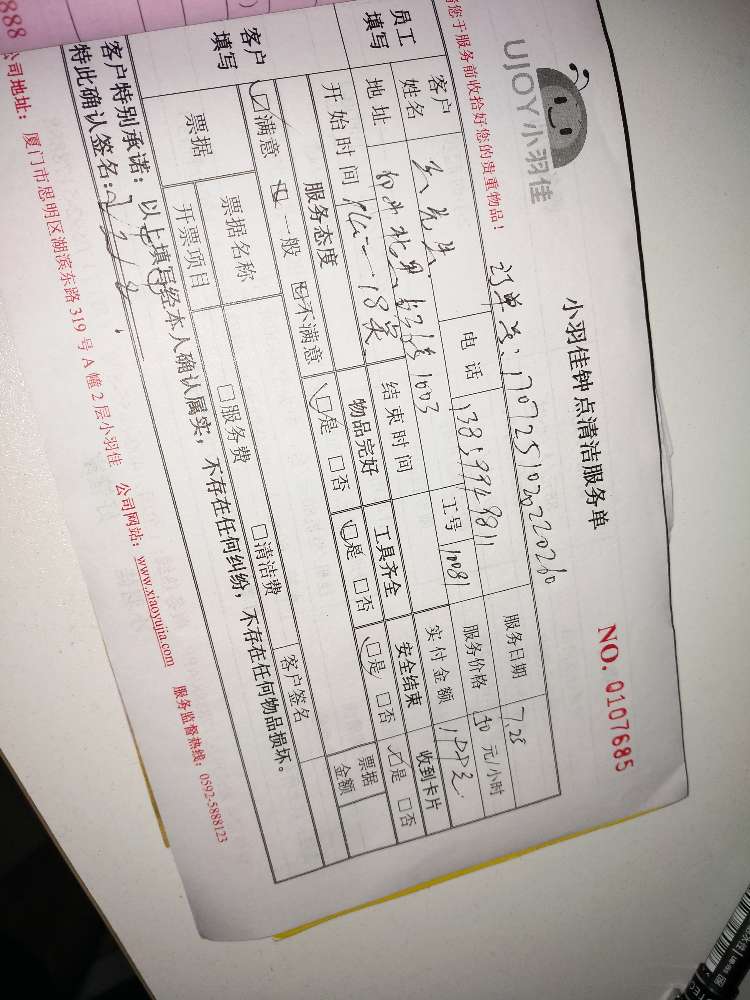 888
UJOY小羽佳
小羽佳钟点清洁服务单
NO. 0107685
您于服务前收拾好您的贵重物品！
服务日期 7.25
员工填写
客户姓名
电话
服务价格 50 元/小时
地址 1003
工号 10081
实付金额
开始时间
结束时间
客户填写
服务态度 物品完好 工具齐全 安全结束 收到卡片
☑满意 □一般 □不满意 ☑是 □否 ☑是 □否 ☑是 □否 ☑是 □否
票据
票据名称
客户签名
票据金额
开票项目 □服务费 □清洁费
客户特别承诺：以上填写经本人确认属实，不存在任何纠纷，不存在任何物品损坏。
特此确认签名：
公司地址：厦门市思明区湖滨东路 319 号 A 幢 2 层小羽佳 公司网站：www.xiaoyujia.com 服务监督热线：0592-5888123